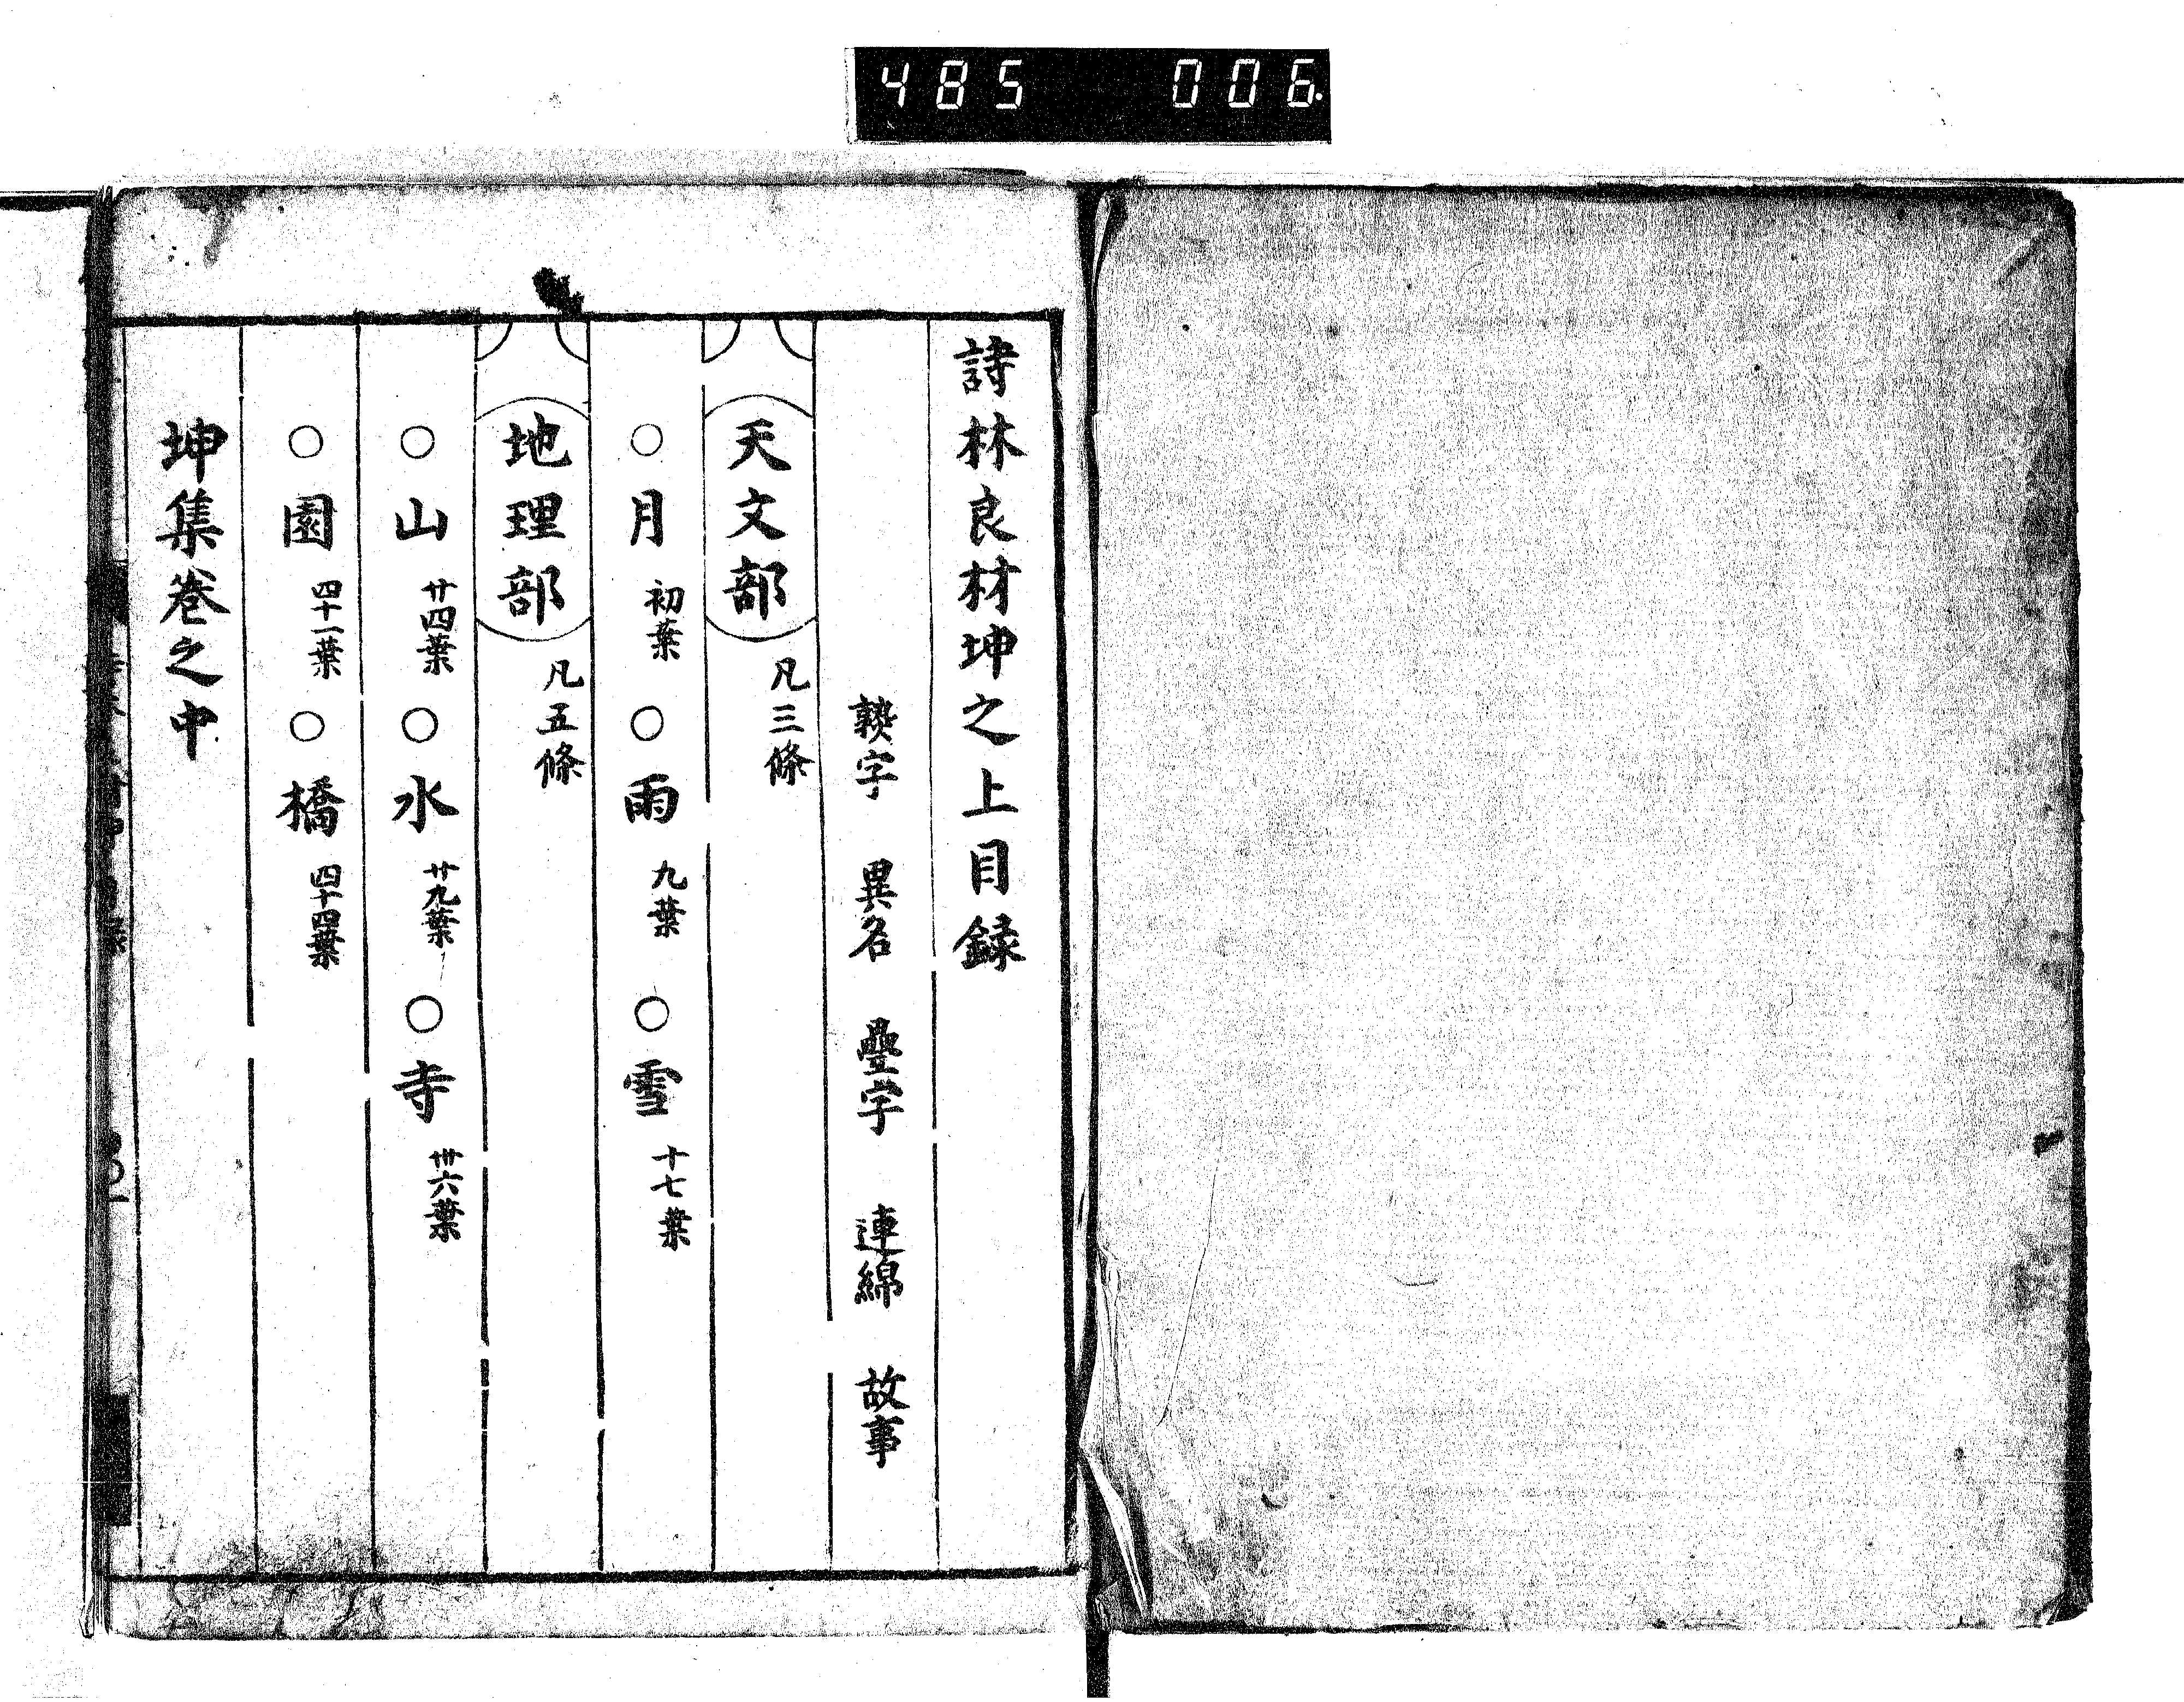 485 006.
詩林良材坤之上目録
熟字 異名 疊字 連綿 故事
天文部 凡三條
○月 初葉 ○雨 九葉 ○雪 十七葉
地理部 凡五條
○山 廿四葉 ○水 廿九葉 ○寺 卅六葉
○園 四十一葉 ○橋 四十四葉
坤集巻之中